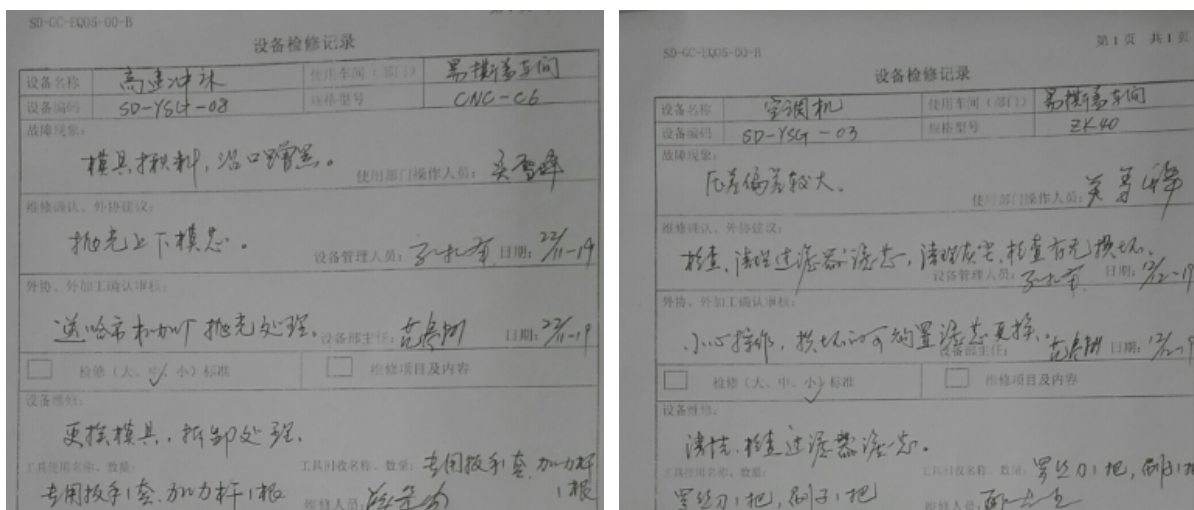 SD-GC-EQ05-00-B
设备检修记录
设备名称 高速冲床 使用车间（部门） 易撕盖车间
设备编码 SD-YSG-08 规格型号 CNC-C6
故障现象：
模具 料，沿口 黑。
使用部门操作人员：吴雪峰
维修确认、外协建议：
抛光上下模芯。
设备管理人员： 日期：22/11-19
外协、外加工确认审核：
送哈市机加厂抛光处理。
设备部主任： 日期：22/11-19
检修（大、中、小）标准 维修项目及内容
设备维修：
更换模具，拆卸处理。
工具使用名称、数量： 工具回收名称、数量：专用扳手1套，加力杆1根
专用扳手1套，加力杆1根
维修人员：
第1页 共1页
SD-GC-EQ05-00-B
设备检修记录
设备名称 空调机 使用车间（部门） 易撕盖车间
设备编码 SD-YSG-03 规格型号 ZK40
故障现象：
压差偏差较大。
使用部门操作人员：吴雪峰
维修确认、外协建议：
检查、清理过滤器滤芯，清理灰尘，检查有无损坏。
设备管理人员： 日期：12/12-19
外协、外加工确认审核：
小心操作，损坏 可 置滤芯更换。
设备部主任： 日期：12/12-19
检修（大、中、小）标准 维修项目及内容
设备维修：
清洁、检查过滤器滤芯。
工具使用名称、数量： 工具回收名称、数量：罗丝刀1把，刷子1把
罗丝刀1把，刷子1把
维修人员：